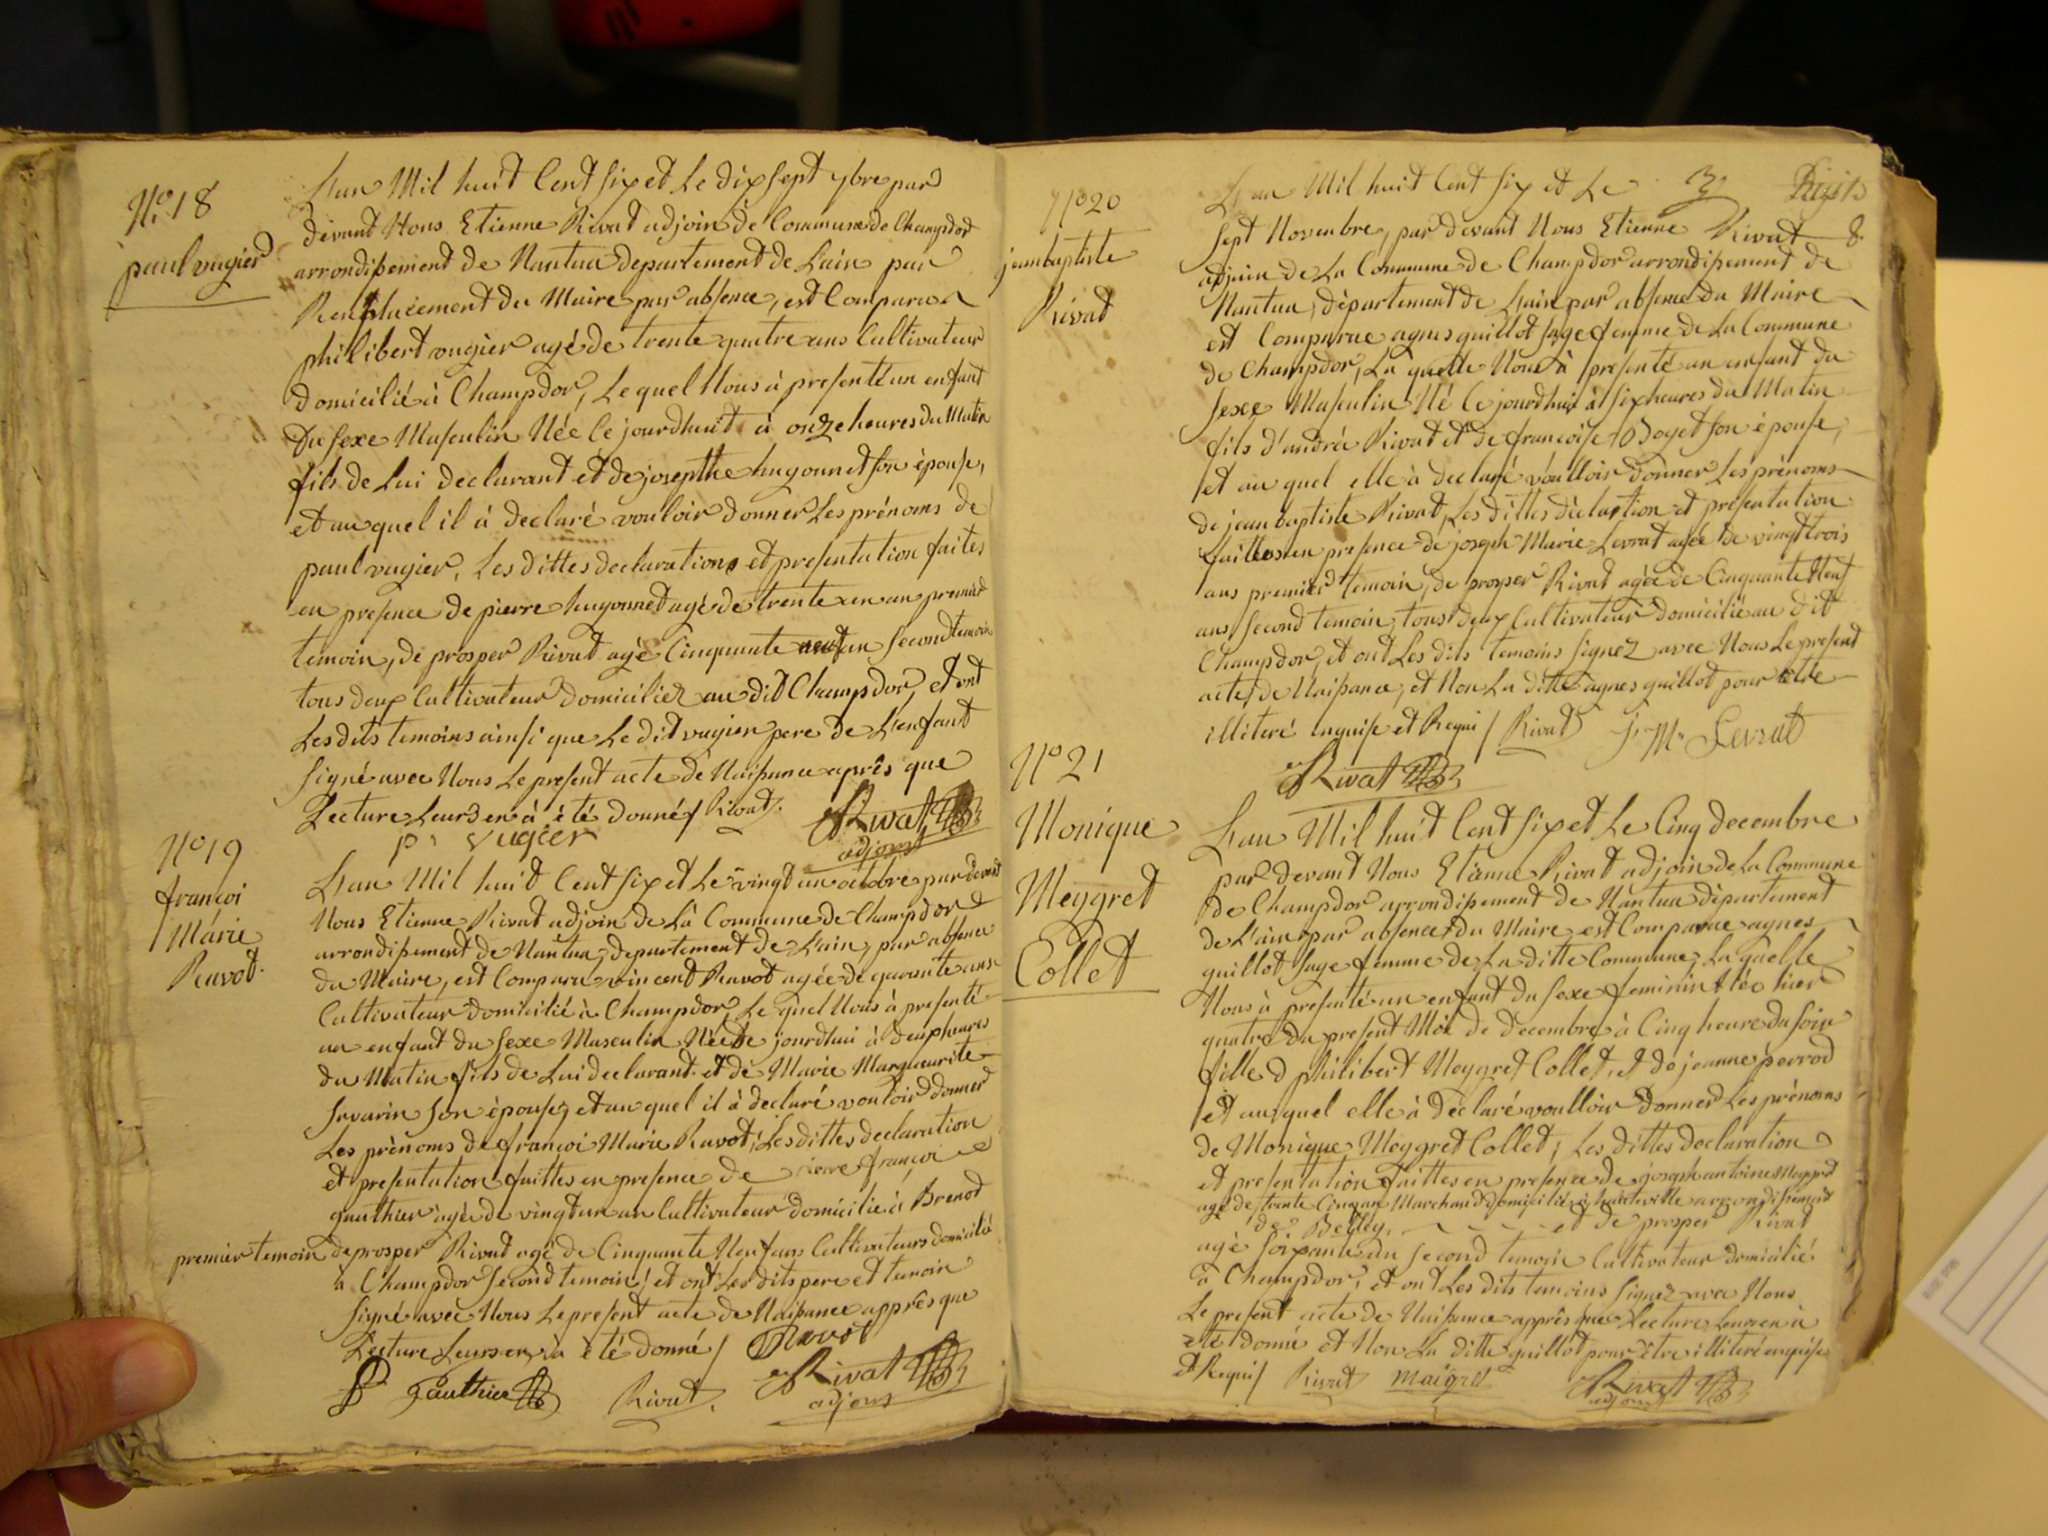 N° 18
paul vugier
L'an Mil huit Cent six et Le dix sept 7bre par
devant Nous Etienne Rivat adjoin de Commune de Champdor
arrondissement de Nantua departement de L'ain par
Remplacement du Maire par absence, est Comparu
philibert vugier agé de trente quatre ans Cultivateur
domicilié à Champdor, Lequel Nous à presenté un enfant
du sexe Masculin Née Ce jourdhuit à onze heures du Matin
fils de Lui declarant et de josepthe hugonnet son épouse,
et au quel il à declaré vouloir donner Les prénoms de
paul vugier, Les dittes declarations et presentation faites
en presence de pierre hugonnet agé de trente un an premier
temoin, de prosper Rivat agé Cinquante neuf an second temoin
tous deux Cultivateur domiciliez au dit Champdor, et ont
Les dits temoins ainsi que Le dit vugier pere de L'enfant
signé avec Nous Le present acte de Naissance après que
Lecture Leurs en à été donné / Rivat.
Rivat
adjoint
p. vugier
N° 19
françoi
Marie
Ravot.
L'an Mil huit Cent six et Le vingt un octobre par devant
Nous Etienne Rivat adjoin de La Commune de Champdor
arrondissement de Nantua, departement de L'ain, par absence
du Maire, est Comparu vincent Ravot agée de quarante ans
Cultivateur domicilié à Champdor, Le quel Nous à presenté
un enfant du sexe Masculin Née Ce jourdhui à deux heures
du Matin fils de Lui declarant et de Marie Margueurite
Savarin son épouse, et au quel il à declaré vouloir donner
Les prénoms de françoi Marie Ravot, Les dittes declaration
et presentation faittes en presence de pierre françoi
gauthier agée de vingt un an Cultivateur domicilié à Brenod
premier temoin de prosper Rivat agé de Cinquante Neuf ans Cultivateurs domicilié
à Champdor second temoin, et ont Les dits pere et temoin
signé avec Nous Le present acte de Naissance apprès que
Lecture Leurs en à été donné / Ravot
Gauthier Rivat. Rivat
adjoint
N° 20
jean baptiste
Rivat
L'an Mil huit Cent six et Le
sept Novembre, par devant Nous Etienne Rivat
adjoin de La Commune de Champdor arrondissement de
Nantua, département de L'ain par absence du Maire
est Comparue agnes guillot sage femme de La Commune
de Champdor, La quelle Nous à presenté un enfant du
sexe Masculin Né Ce jourdhui à six heures du Matin
fils d'andré Rivat et de françoise Boyet son épouse,
et au quel elle à declaré voulloir donner Les prénoms
de jean baptiste Rivat, Les dittes déclartion et présentation
faittes en presence de joseph Marie Levrat agée de vingt trois
ans premier temoin, de prosper Rivat agée de Cinquante Neuf
ans second temoin, tous deux Cultivateur domicilié au dit
Champdor, et ont Les dits temoins signez avec Nous Le present
acte de Naissance, et Non La ditte agnes guillot pour être
illiteré enquise et Requi / Rivat J. M. Levrat
Rivat
N° 21
Monique
Meygret
Collet
L'an Mil huit Cent six et Le Cinq decembre
par devant Nous Etienne Rivat adjoin de La Commune
de Champdor arrondissement de Nantua département
de L'ain par absence du Maire est Comparue agnes
guillot sage femme de La ditte Commune, La quelle
Nous à presenté un enfant du sexe feminin Née hier
quatre du present Mois de decembre à Cinq heure du soir
fille d philibert Meygret Collet, et de jeanne perrod
et au quel elle à declaré voulloir donner Les prénoms
de Monique Meygret Collet, Les dittes declaration
et presentation faittes en presence de joseph antoine Meygret
agé de trente Cinq an Marchand domicilié à hauteville arrondissement
de Belley, et de prosper Rivat
agé soixante un second temoin Cultivateur domicilié
à Champdor, et ont Les dits temoins signez avec Nous
Le present acte de Naissance après que Lecture Leurs en à
eté donné et Non La ditte guillot pour être illiteré enquise
et Requi / Rivat Maigret Rivat
adjoint